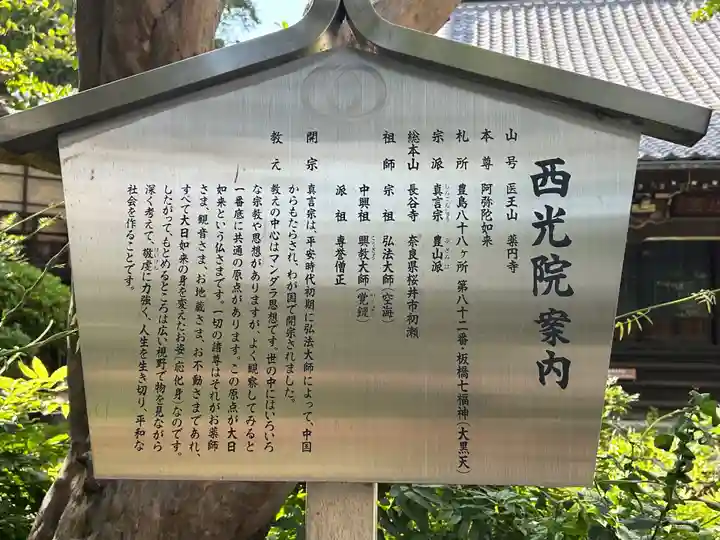 西光院案内
山号 医王山 薬円寺
本尊 阿弥陀如来
札所 豊島八十八ヶ所 第八十二番・板橋七福神(大黒天)
宗派 真言宗 豊山派
総本山 長谷寺 奈良県桜井市初瀬
祖師 宗祖 弘法大師(空海)
中興祖 興教大師(覚鑁)
派祖 専誉僧正
開宗 真言宗は、平安時代初期に弘法大師によって、中国
からもたらされ、わが国で開宗されました。
教え 教えの中心はマンダラ思想です。世の中にはいろいろ
な宗教や思想がありますが、よく観察してみると
一番底に共通の原点があります。この原点が大日
如来という仏さまです。一切の諸尊はそれがお薬師
さま、観音さま、お地蔵さま、お不動さまであれ、
すべて大日如来の身を変えたお姿(応化身)なのです。
したがって、もとめるところは広い視野で物を見ながら
深く考えて、敬虔に力強く、人生を生き切り、平和な
社会を作ることです。